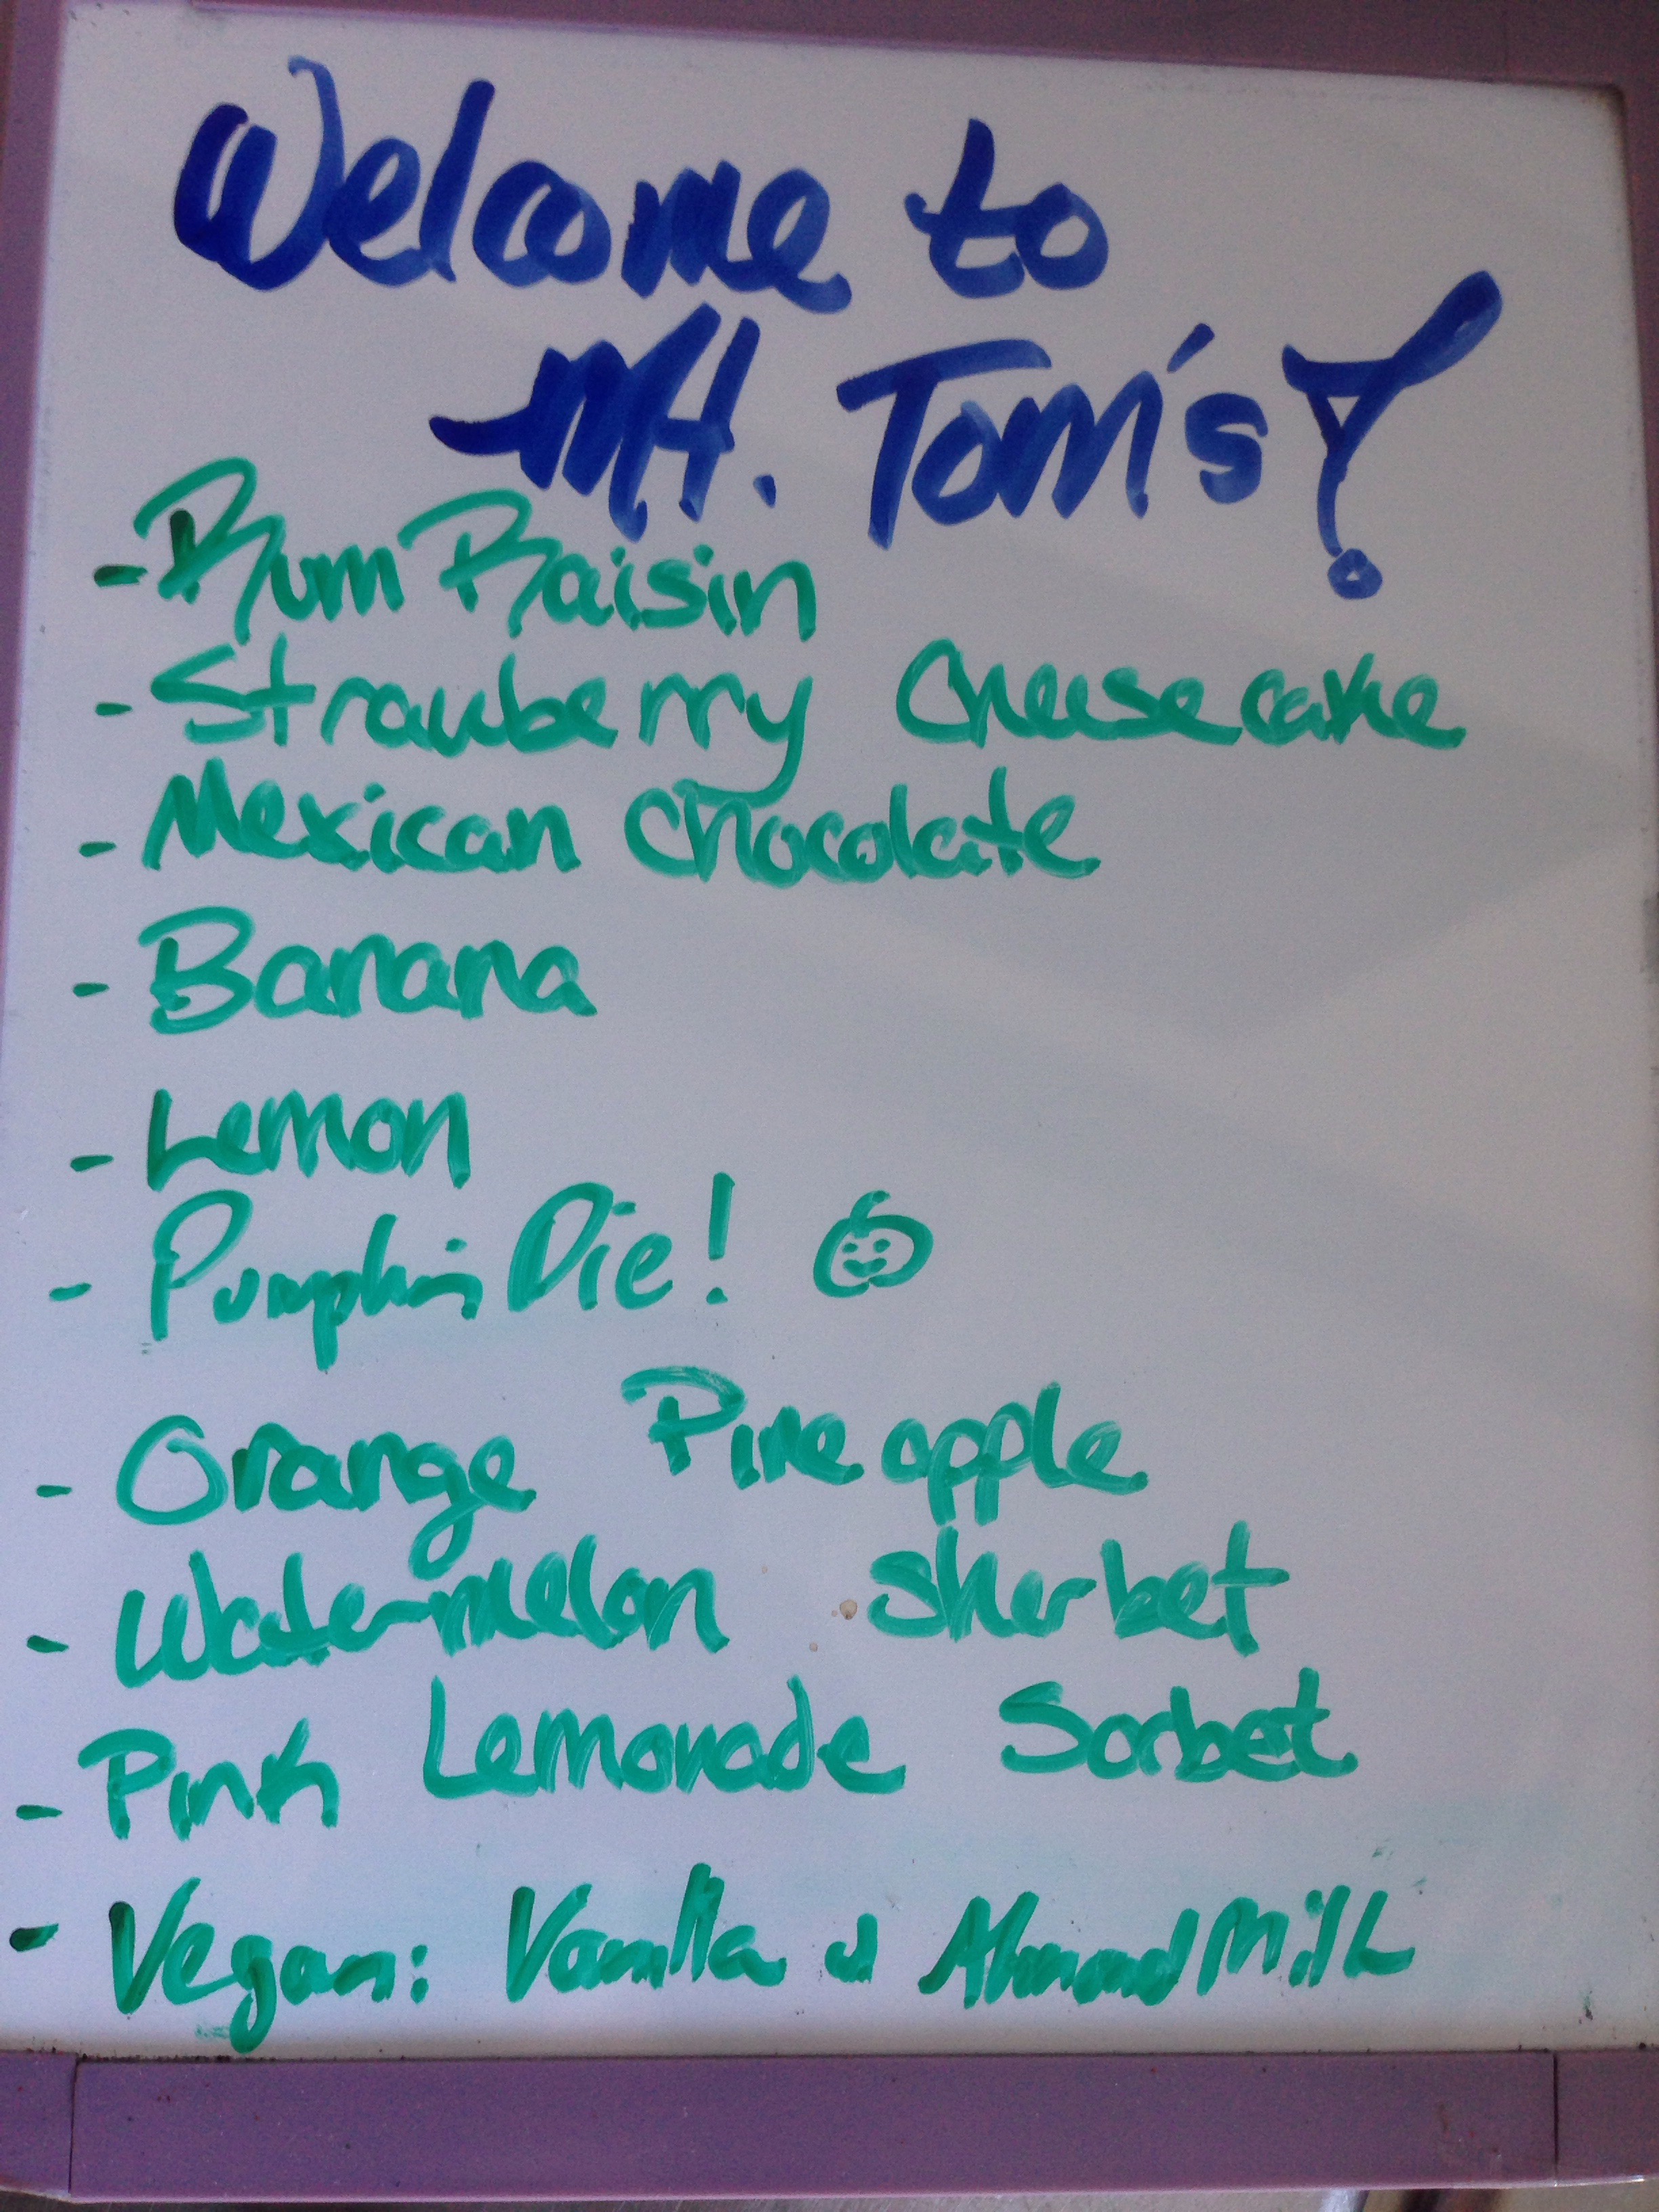 Welcome to
Mt. Tom's!
- Rum Raisin
- Strawberry Cheesecake
- Mexican Chocolate
- Banana
- Lemon
- Pumpkin Pie!
- Orange Pineapple
- Watermelon Sherbet
- Pink Lemonade Sorbet
- Vegan: Vanilla w Almond Milk